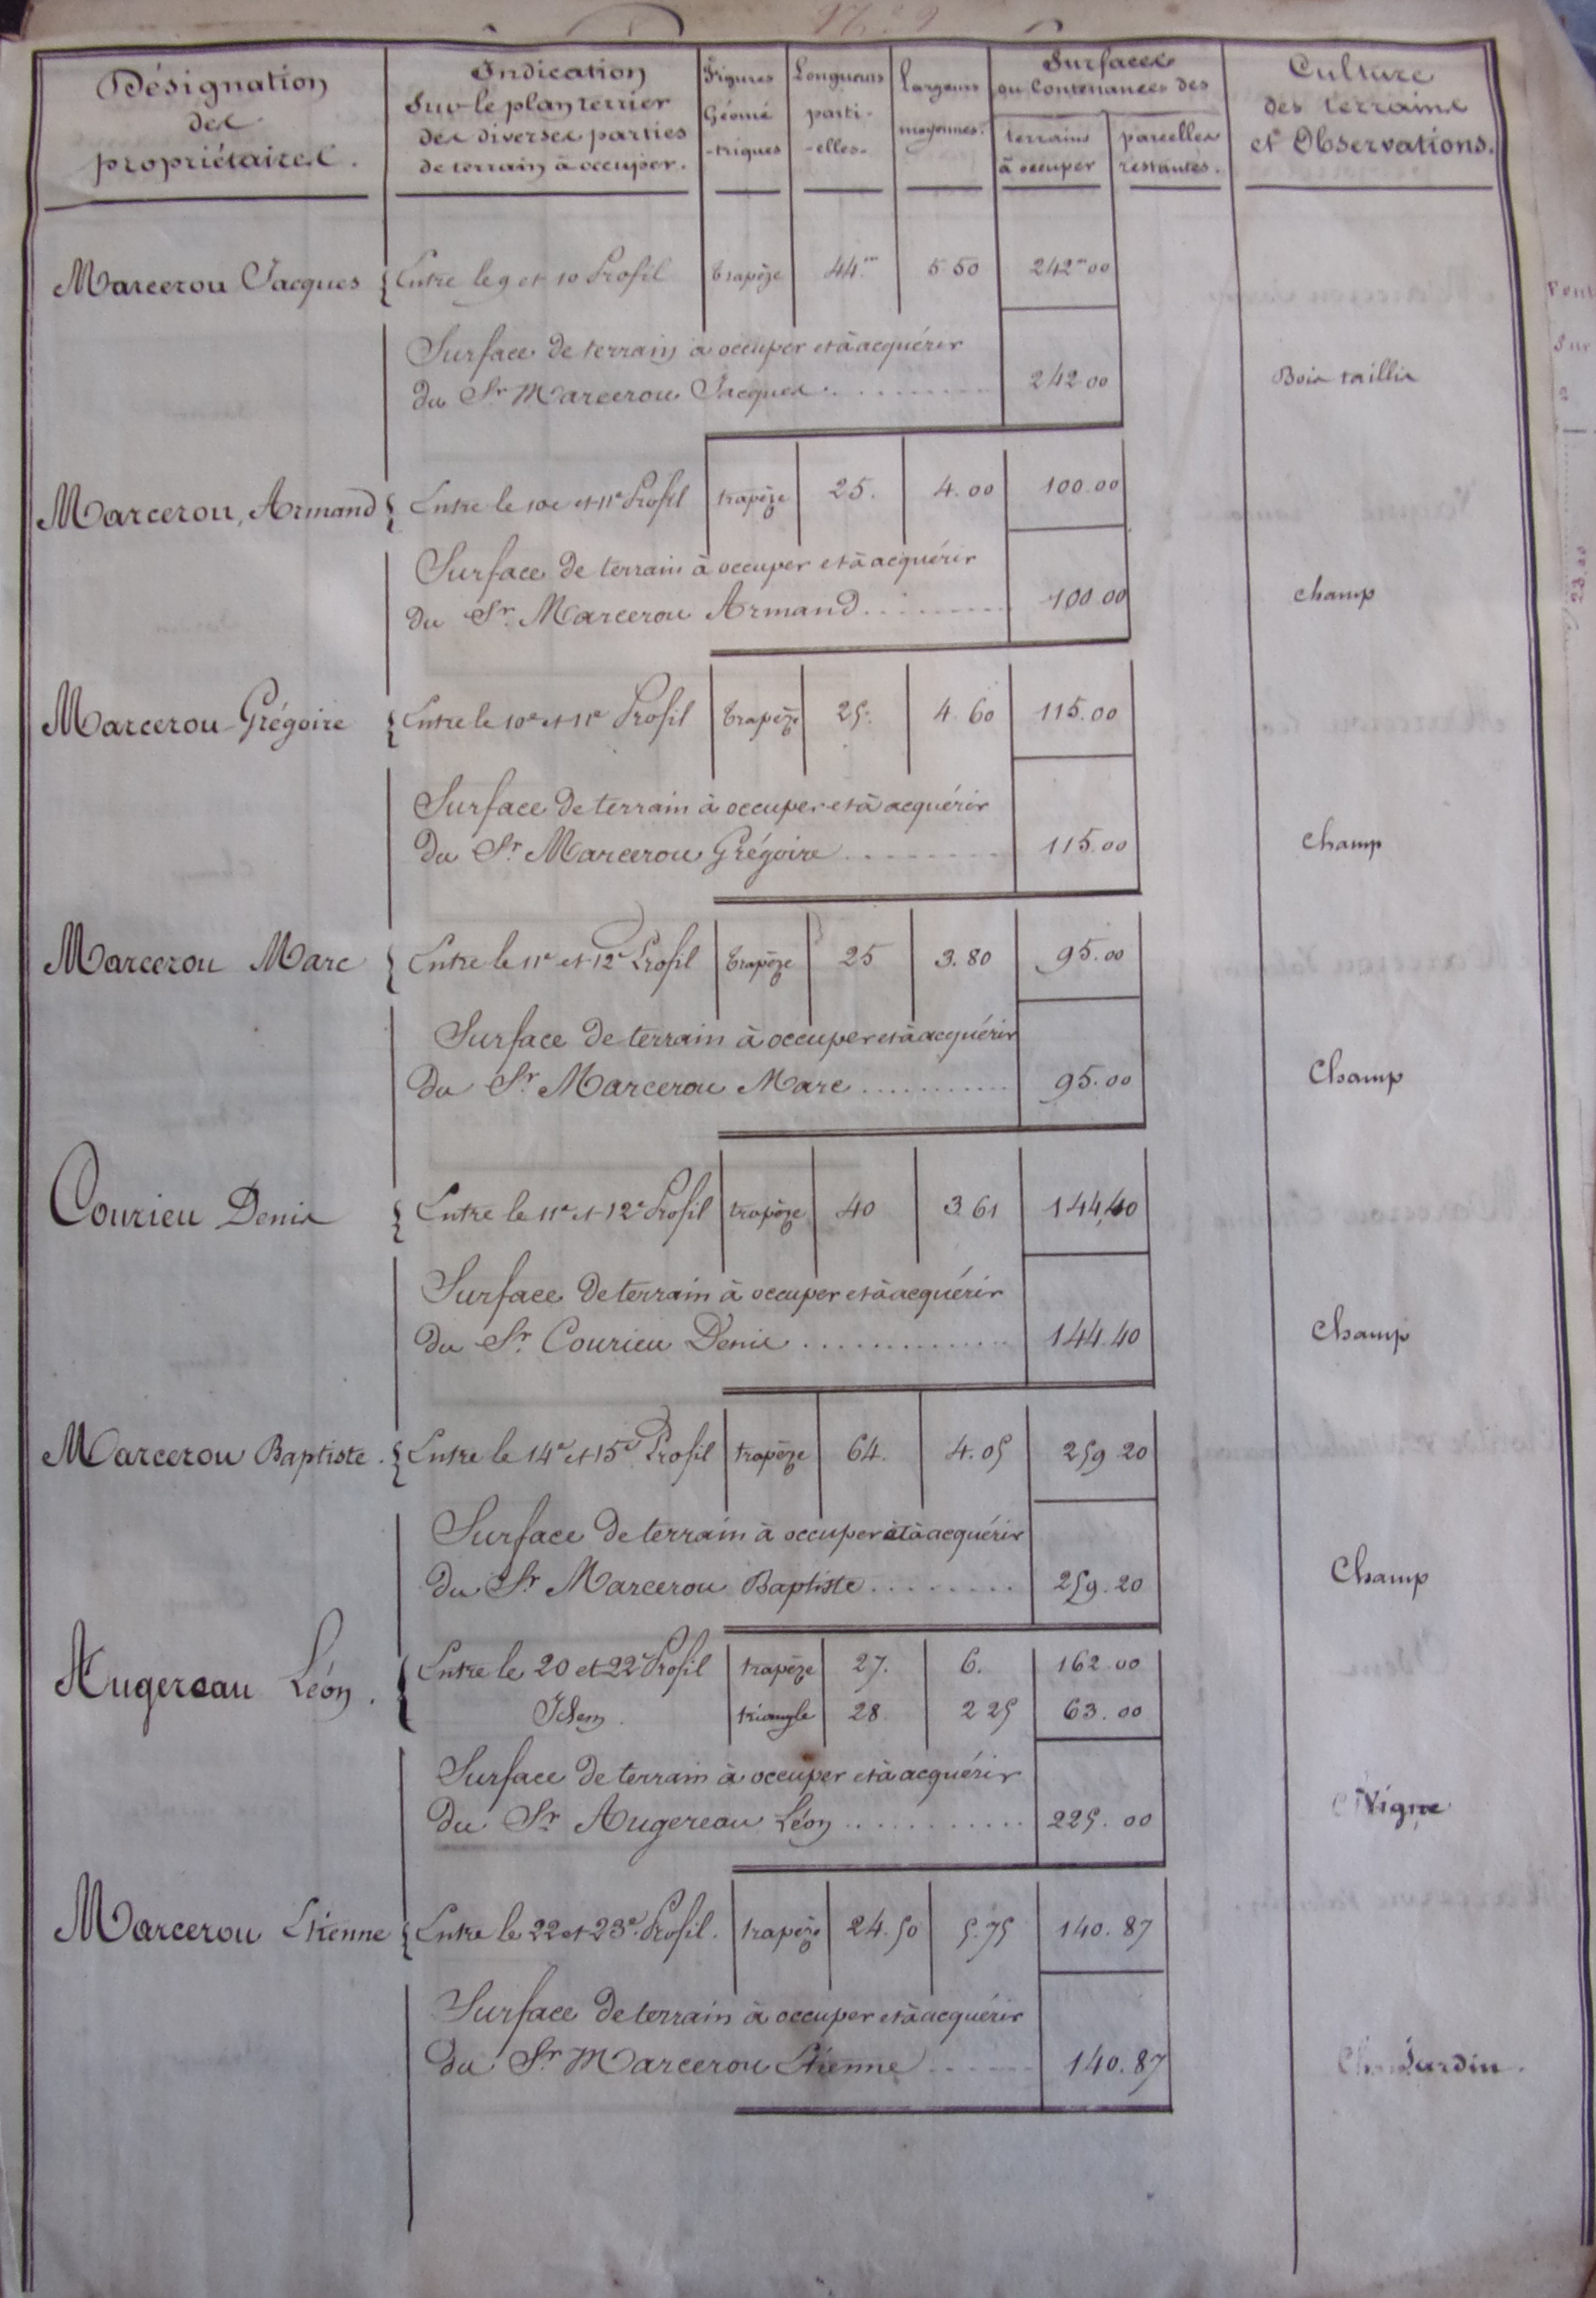 Désignation
des
propriétaires.
Indication
sur le plan terrier
des diverses parties
de terrain à occuper.
Figures
Géomé
-triques
Longueurs
parti-
-elles.
Largeurs
moyennes.
Surfaces
ou Contenances des
terrains
à occuper
parcelles
restantes.
Culture
des terrains
et Observations.
Marcerou Jacques { Entre le 9 et 10 Profil trapèze 44.m 5.50 242m00
Surface de terrain à occuper et à acquérir
du Sr Marcerou Jacques .......... 242.00 Bois taillis
Marcerou, Armand { Entre le 10e et 11e Profil trapèze 25. 4.00 100.00
Surface de terrain à occuper et à acquérir
du Sr. Marcerou Armand .......... 100.00 champ
Marcerou Grégoire { Entre le 10e et 11e Profil trapèze 25. 4.60 115.00
Surface de terrain à occuper et à acquérir
du Sr Marcerou Grégoire .......... 115.00 champ
Marcerou Marc { Entre le 11e et 12e Profil trapèze 25 3.80 95.00
Surface de terrain à occuper et à acquérir
du Sr. Marcerou Marc .......... 95.00 Champ
Courieu Denis { Entre le 11e et 12e Profil trapèze 40 3.61 144,40
Surface de terrain à occuper et à acquérir
du Sr. Courieu Denis .......... 144.40 Champ
Marcerou Baptiste. { Entre le 14e et 15e Profil trapèze 64. 4.05 259.20
Surface de terrain à occuper et à acquérir
du Sr Marcerou Baptiste .......... 259.20 Champ
Augereau Léon. { Entre le 20 et 22e Profil trapèze 27. 6. 162.00
Idem. triangle 28. 2.25 63.00
Surface de terrain à occuper et à acquérir
du Sr. Augereau Léon .......... 225.00 Vigne
Marcerou Etienne { Entre le 22 et 23e Profil. trapèze 24.50 5.75 140.87
Surface de terrain à occuper et à acquérir
du Sr. Marcerou Etienne .......... 140.87 Jardin.